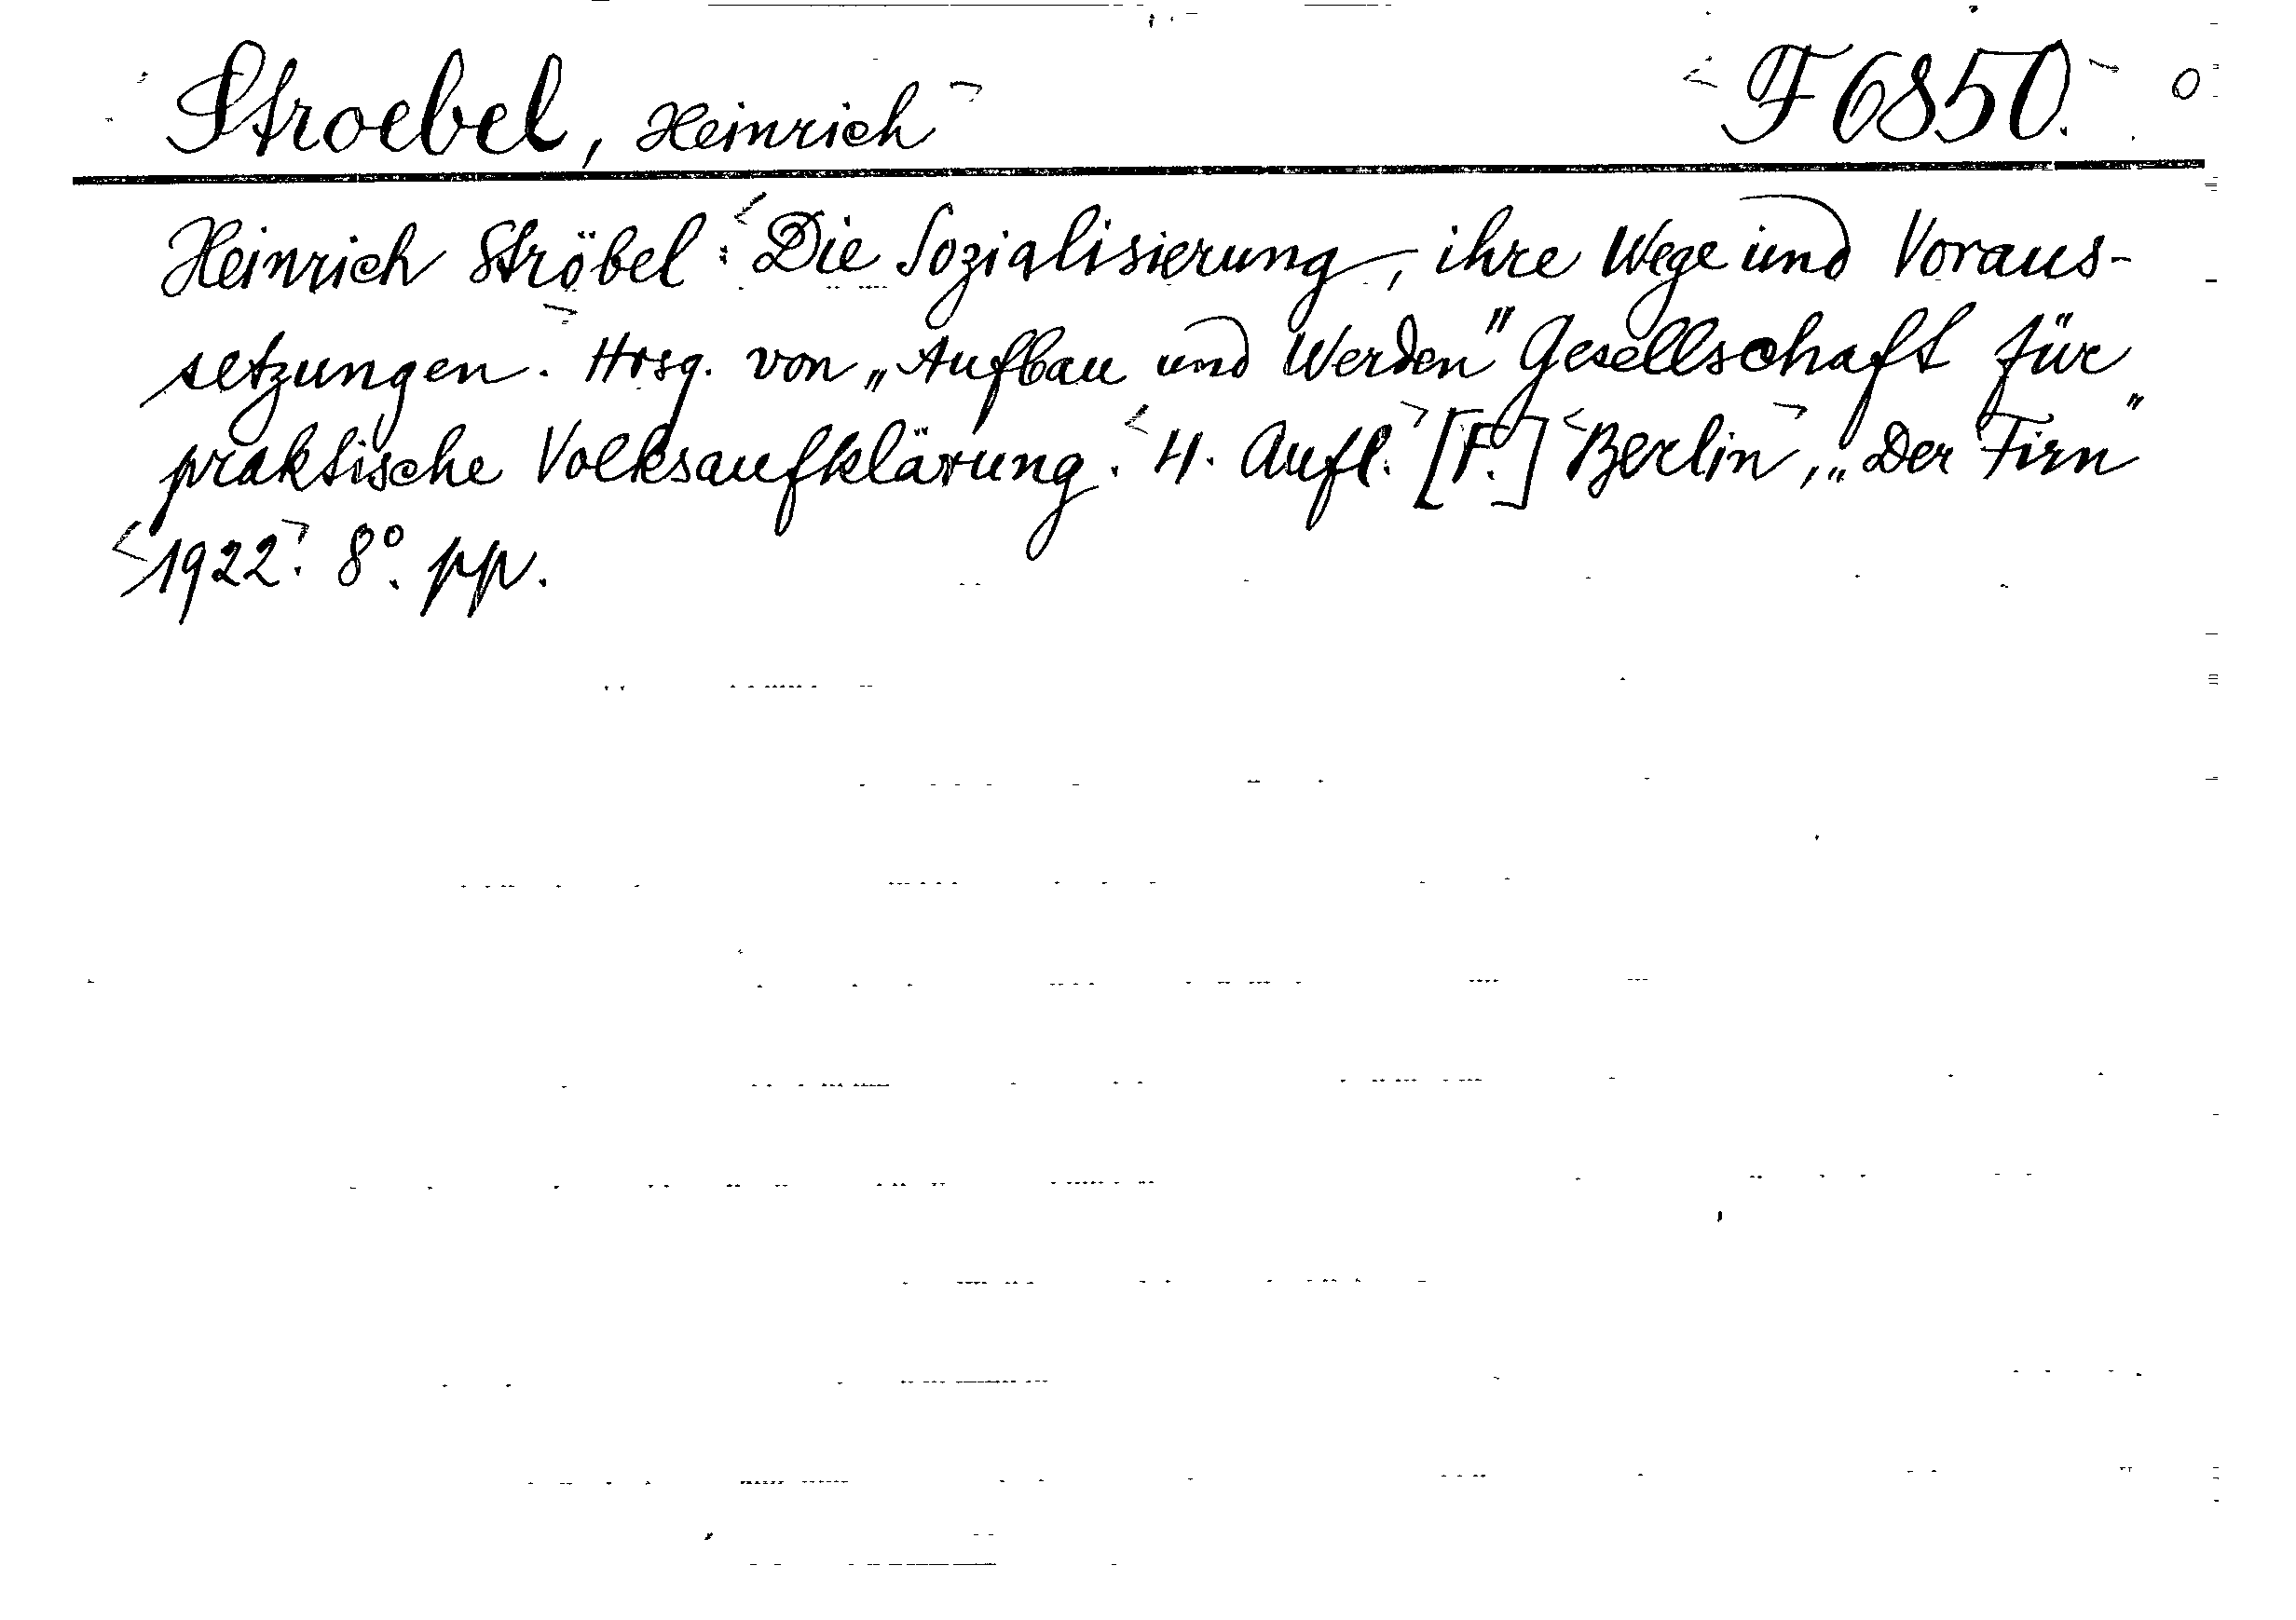 Stroebel, Heinrich F 6850. 0
Heinrich Ströbel: Die Sozialisierung, ihre Wege und Voraus-
setzungen. Hrsg. von „Aufbau und Werden" Gesellschaft für
praktische Volksaufklärung. 4. Aufl. [F.] Berlin, „Der Firn"
1922. 8°. pp.